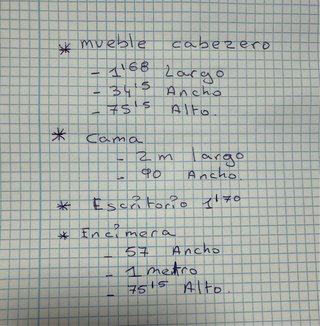 * mueble cabezero
- 1'68 Largo
- 34'5 Ancho
- 75'5 Alto.
* Cama
- 2m largo
- 90 Ancho.
* Escritorio 1'70
* Encimera
- 57 Ancho
- 1 metro
- 75'5 Alto.